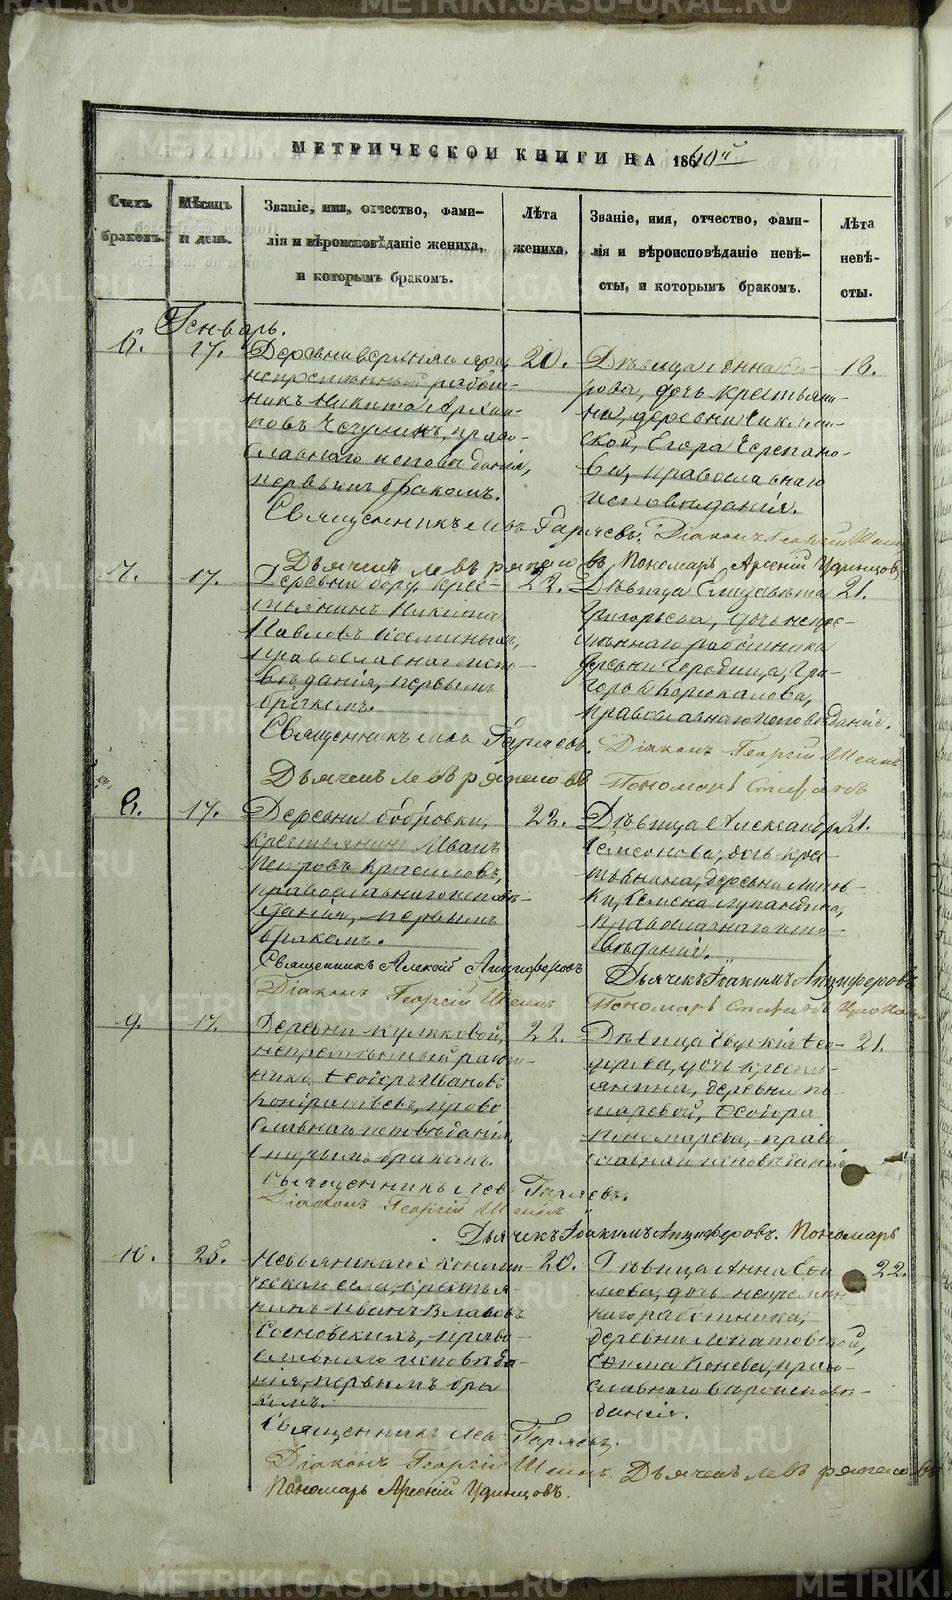 МЕТРИЧЕСКОЙ КНИГИ НА 1860й
Счетъ браковъ.
Мѣсяцъ и день.
Званіе, имя, отчество, фами-
лія и вѣроисповѣданіе жениха,
и которымъ бракомъ.
Лѣта
жениха.
Званіе, имя, отчество, фами-
лія и вѣроисповѣданіе невѣ-
сты, и которымъ бракомъ.
Лѣта
невѣ-
сты.
Генварь.
6. 17.
непременный работ-
никъ Никита Архи-
повъ Чечулинъ, право-
славнаго исповѣданія,
первымъ бракомъ.
20.
Дѣвица Анна Его-
рова, дочь крестьяни-
на, деревни
ской, Егора Черепано-
ва, православнаго
исповѣданія.
18.
Священникъ Левъ Гаряевъ. Діаконъ Георгій Шеинъ
Дьячекъ Левъ Пономарь Арсеній Удинцовъ
7. 17.
Деревни бору, крес-
тьянинъ Никита
Павловъ
православнаго испо-
вѣданія, первымъ
бракомъ.
22.
Дѣвица Елизавета
Григорьева, дочь непре-
меннаго работника
деревни Городища, Гри-
горья Корюкалова,
православнаго исповѣданія.
21.
Священникъ Левъ Гаряевъ. Діаконъ Георгій Шеинъ
Дьячекъ Левъ Пономарь Стефанъ
8. 17.
Деревни бобровки,
крестьянинъ Иванъ
Петровъ Красиловъ,
православнаго исповѣ-
данія, первымъ
бракомъ.
22.
Дѣвица Александра
Семенова, дочь крес-
тьянина, деревни
православнаго испо-
вѣданія.
21.
Священникъ Алексій Анциферовъ
Дьячекъ Іоакимъ Анциферовъ
Діаконъ Георгій Шеинъ
Пономарь Стефанъ
9. 17.
Деревни куликовой,
непременный работ-
никъ, Ѳеодоръ Ивановъ
Кондратьевъ, право-
славнаго исповѣданія,
бракомъ.
22.
Дѣвица Ѳео-
дорова, дочь кресть-
янина, деревни по-
марёвой, Ѳеодора
Пономарева, право-
славнаго исповѣданія
21.
Священникъ Левъ Гаряевъ.
Діаконъ Георгій Шеинъ
Дьячекъ Іоакимъ Анциферовъ. Пономарь
10. 25.
Невьянскаго
села, крестья-
нинъ Иванъ Власовъ
Сосновскихъ, право-
славнаго исповѣда-
нія, первымъ бра-
комъ.
20.
Дѣвица Анна Ефи-
мова, дочь непремен-
наго работника,
деревни Липатовской,
Ефима Конева, право-
славнаго вѣроисповѣ-
данія.
22.
Священникъ Левъ Гаряевъ.
Діаконъ Георгій Шеинъ. Дьячекъ Левъ
Пономарь Арсеній Удинцовъ.
METRIKI.GASO-URAL.RU